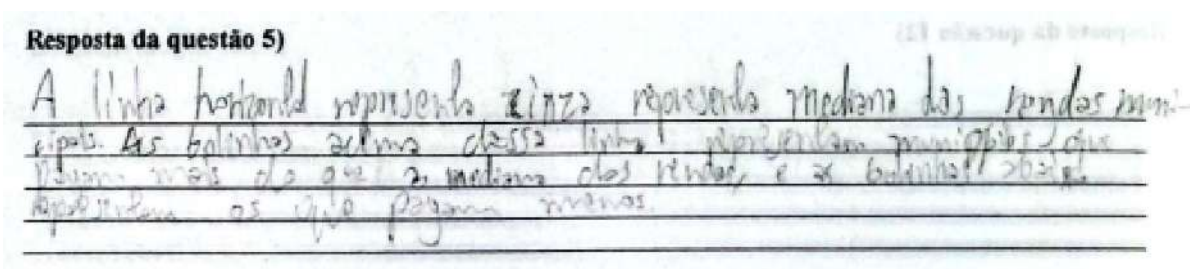 Resposta da questão 5)
A linha horizontal representa cinza representa mediana das rendas muni-
cipais. As bolinhas acima dessa linha representam municípios que
pagam mais do que a mediana das rendas, e as bolinhas abaixo
representam os que pagam menos.